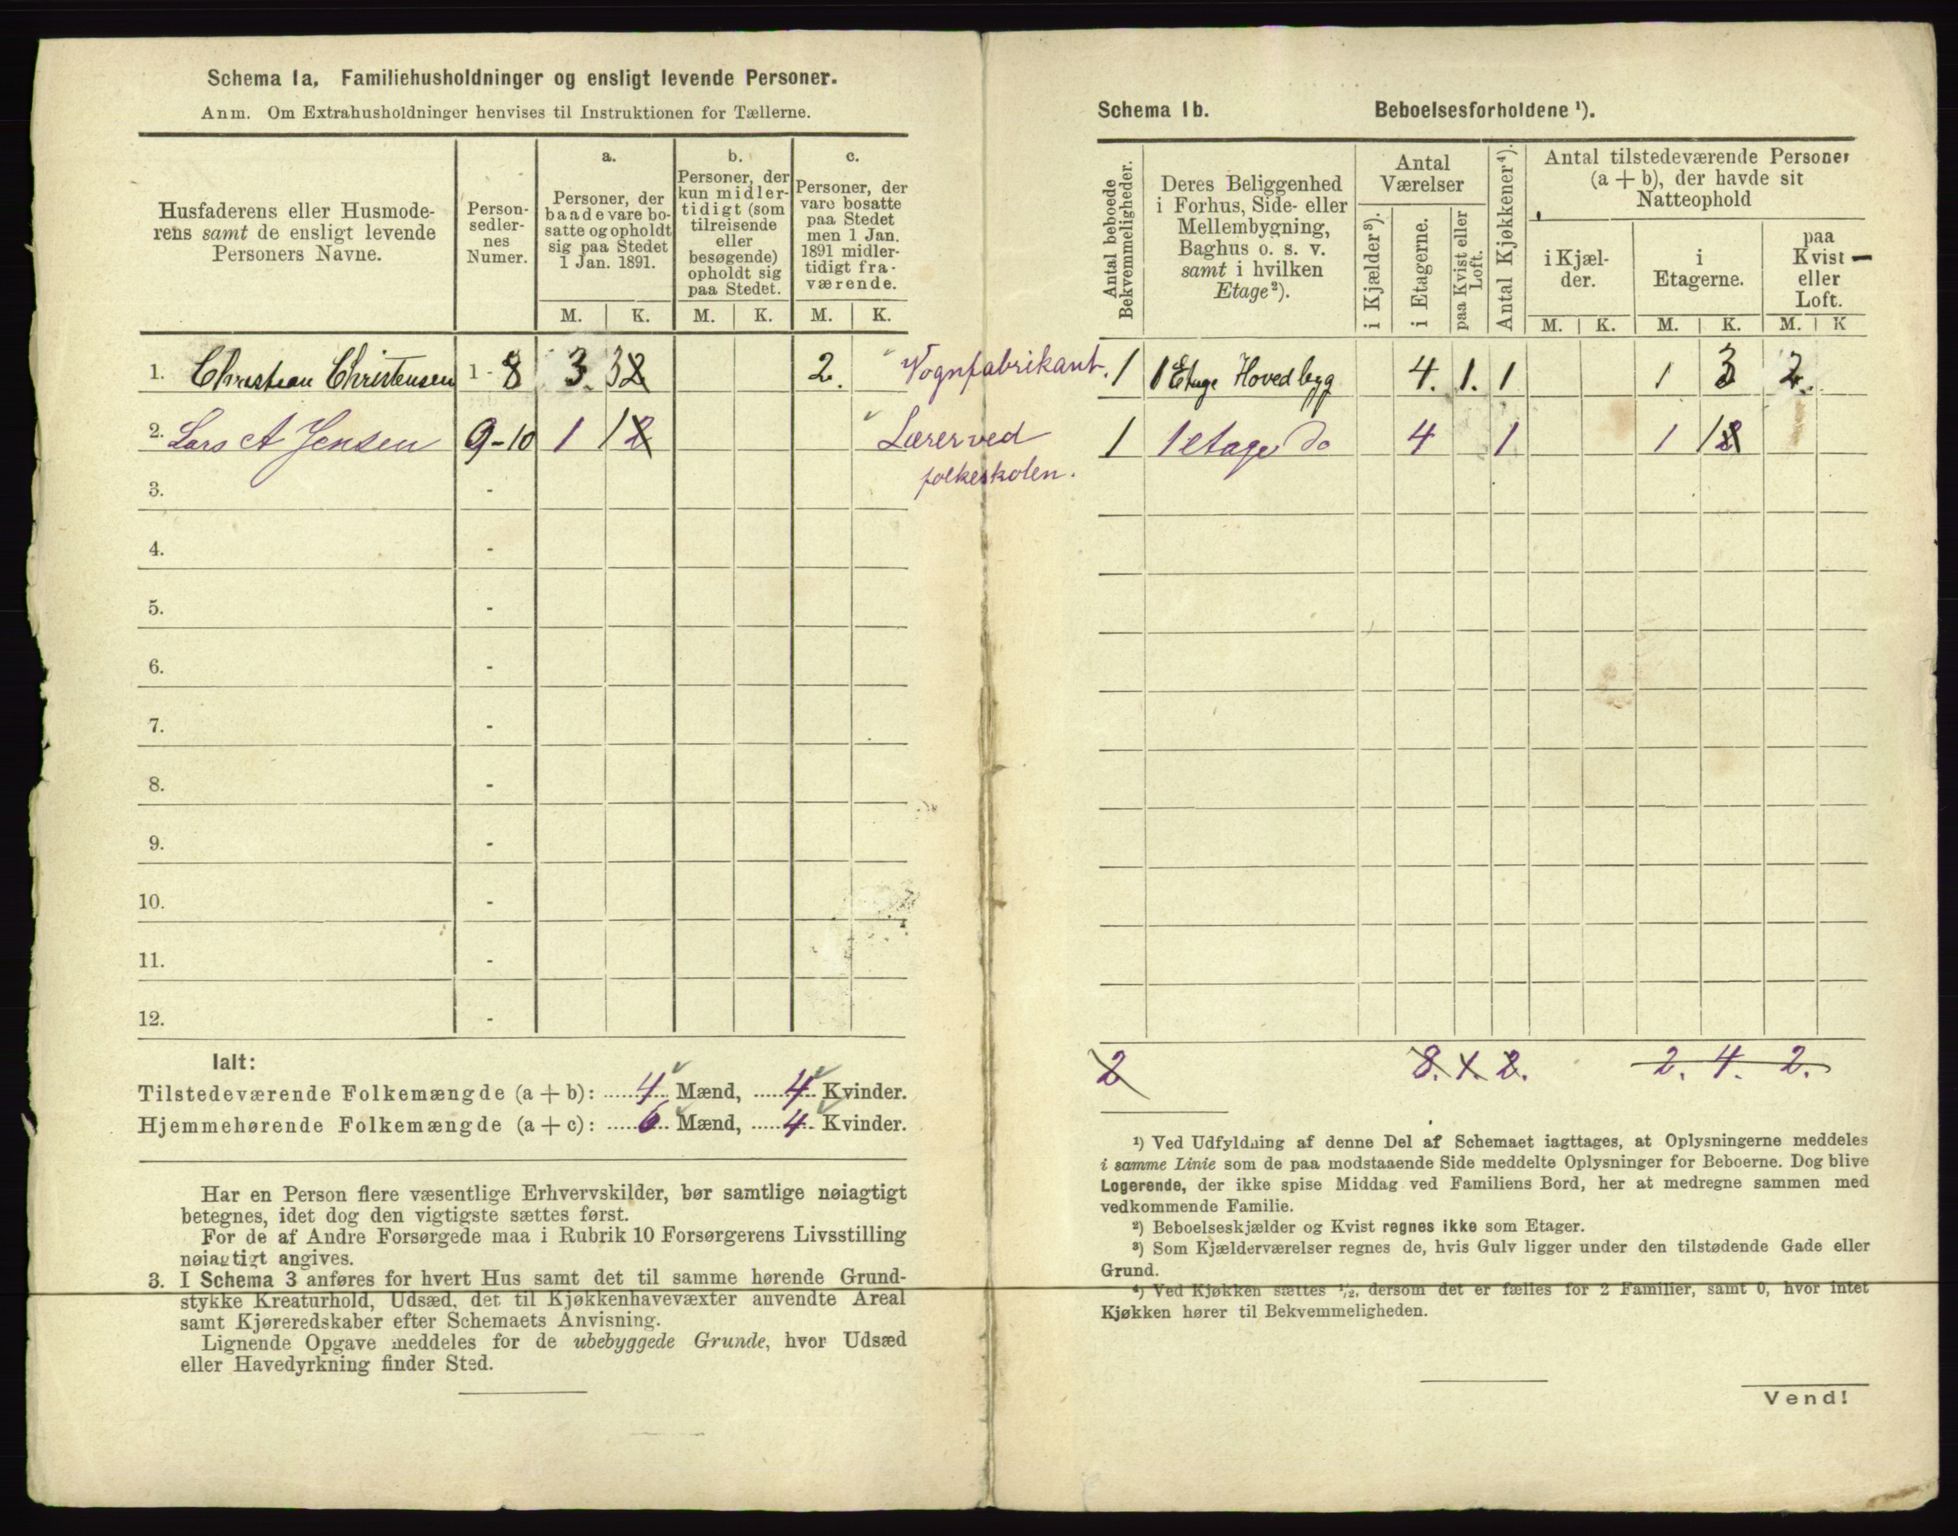 Schema 1a. Familiehusholdninger og ensligt levende Personer.
Anm. Om Extrahusholdninger henvises til Instruktionen for Tællerne.
Husfaderens eller Husmode-
rens samt de ensligt levende
Personers Navne.
Person-
sedler-
nes
Numer.
a.
Personer, der
baade vare bo-
satte og opholdt
sig paa Stedet
1 Jan. 1891.
b.
Personer, der
kun midler-
tidigt (som
tilreisende
eller
besøgende)
opholdt sig
paa Stedet.
c.
Personer, der
vare bosatte
paa Stedet
men 1 Jan.
1891 midler-
tidigt fra-
værende.
M. K. M. K. M. K.
1. Christian Christensen 1 - 8 3. 3 2 2. Vognfabrikant.
2. Lars A Jensen 9-10 1 1 2 Lærer ved
folkeskolen.
3. -
4. -
5. -
6. -
7. -
8. -
9. -
10. -
11. -
12. -
Ialt:
Tilstedeværende Folkemængde (a + b): 4 Mænd, 4 Kvinder.
Hjemmehørende Folkemængde (a + c): 6 Mænd, 4 Kvinder.
Har en Person flere væsentlige Erhvervskilder, bør samtlige nøiagtigt
betegnes, idet dog den vigtigste sættes først.
For de af Andre Forsørgede maa i Rubrik 10 Forsørgerens Livsstilling
nøiagtigt angives.
3. I Schema 3 anføres for hvert Hus samt det til samme hørende Grund-
stykke Kreaturhold, Udsæd, det til Kjøkkenhavevæxter anvendte Areal
samt Kjøreredskaber efter Schemaets Anvisning.
Lignende Opgave meddeles for de ubebyggede Grunde, hvor Udsæd
eller Havedyrkning finder Sted.
Schema 1b. Beboelsesforholdene ¹).
Antal beboede
Bekvemmeligheder.
Deres Beliggenhed
i Forhus, Side- eller
Mellembygning,
Baghus o. s. v.
samt i hvilken
Etage²).
Antal
Værelser
i Kjælder³).
i Etagerne.
paa Kvist eller
Loft.
Antal Kjøkkener⁴).
Antal tilstedeværende Personer
(a + b), der havde sit
Natteophold
i Kjæl-
der.
i
Etagerne.
paa
Kvist
eller
Loft.
M. K. M. K. M. K
1 1 Etage Hovedbyg 4. 1. 1 1 3 2.
1 1 etage do 4 1 1 1 2
2 8. 1. 2. 2. 4. 2.
¹) Ved Udfyldning af denne Del af Schemaet iagttages, at Oplysningerne meddeles
i samme Linie som de paa modstaaende Side meddelte Oplysninger for Beboerne. Dog blive
Logerende, der ikke spise Middag ved Familiens Bord, her at medregne sammen med
vedkommende Familie.
²) Beboelseskjælder og Kvist regnes ikke som Etager.
³) Som Kjælderværelser regnes de, hvis Gulv ligger under den tilstødende Gade eller
Grund.
⁴) Ved Kjøkken sættes ¹/₂, dersom det er fælles for 2 Familier, samt 0, hvor intet
Kjøkken hører til Bekvemmeligheden.
Vend!